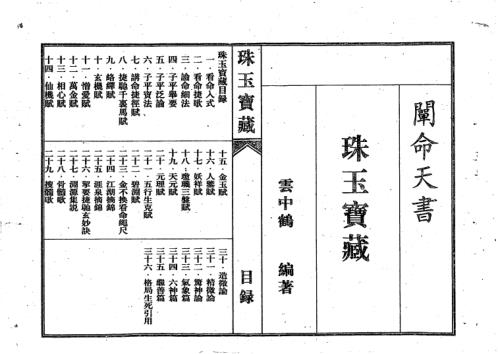 闡命天書
珠玉寶藏
雲中鶴 編著
珠玉寶藏
目錄
珠玉寶藏目錄
一．看命入式
二．看命捷歌
三．論命細法
四．子平舉要
五．子平泛論
六．子平寶法
七．講命捷徑賦
八．捷聰千里馬賦
九．絡繹賦
十．玄機賦
十一．憎愛賦
十二．萬金賦
十三．相心賦
十四．仙機賦
十五．金玉賦
十六．人鑑賦
十七．妖祥賦
十八．造微三盤賦
十九．天元賦
二十．元理賦
二十一．五行生克賦
二十二．碧淵賦
二十三．金不換看命繩尺
二十四．江湖摘錦
二十五．經規摘錦
二十六．掌要捷聰玄妙訣
二十七．淵源集説
二十八．骨髓歌
二十九．搜髓歌
三十．造微論
三十一．精微論
三十二．驚神論
三十三．氣象篇
三十四．六神篇
三十五．繼善篇
三十六．格局生死引用